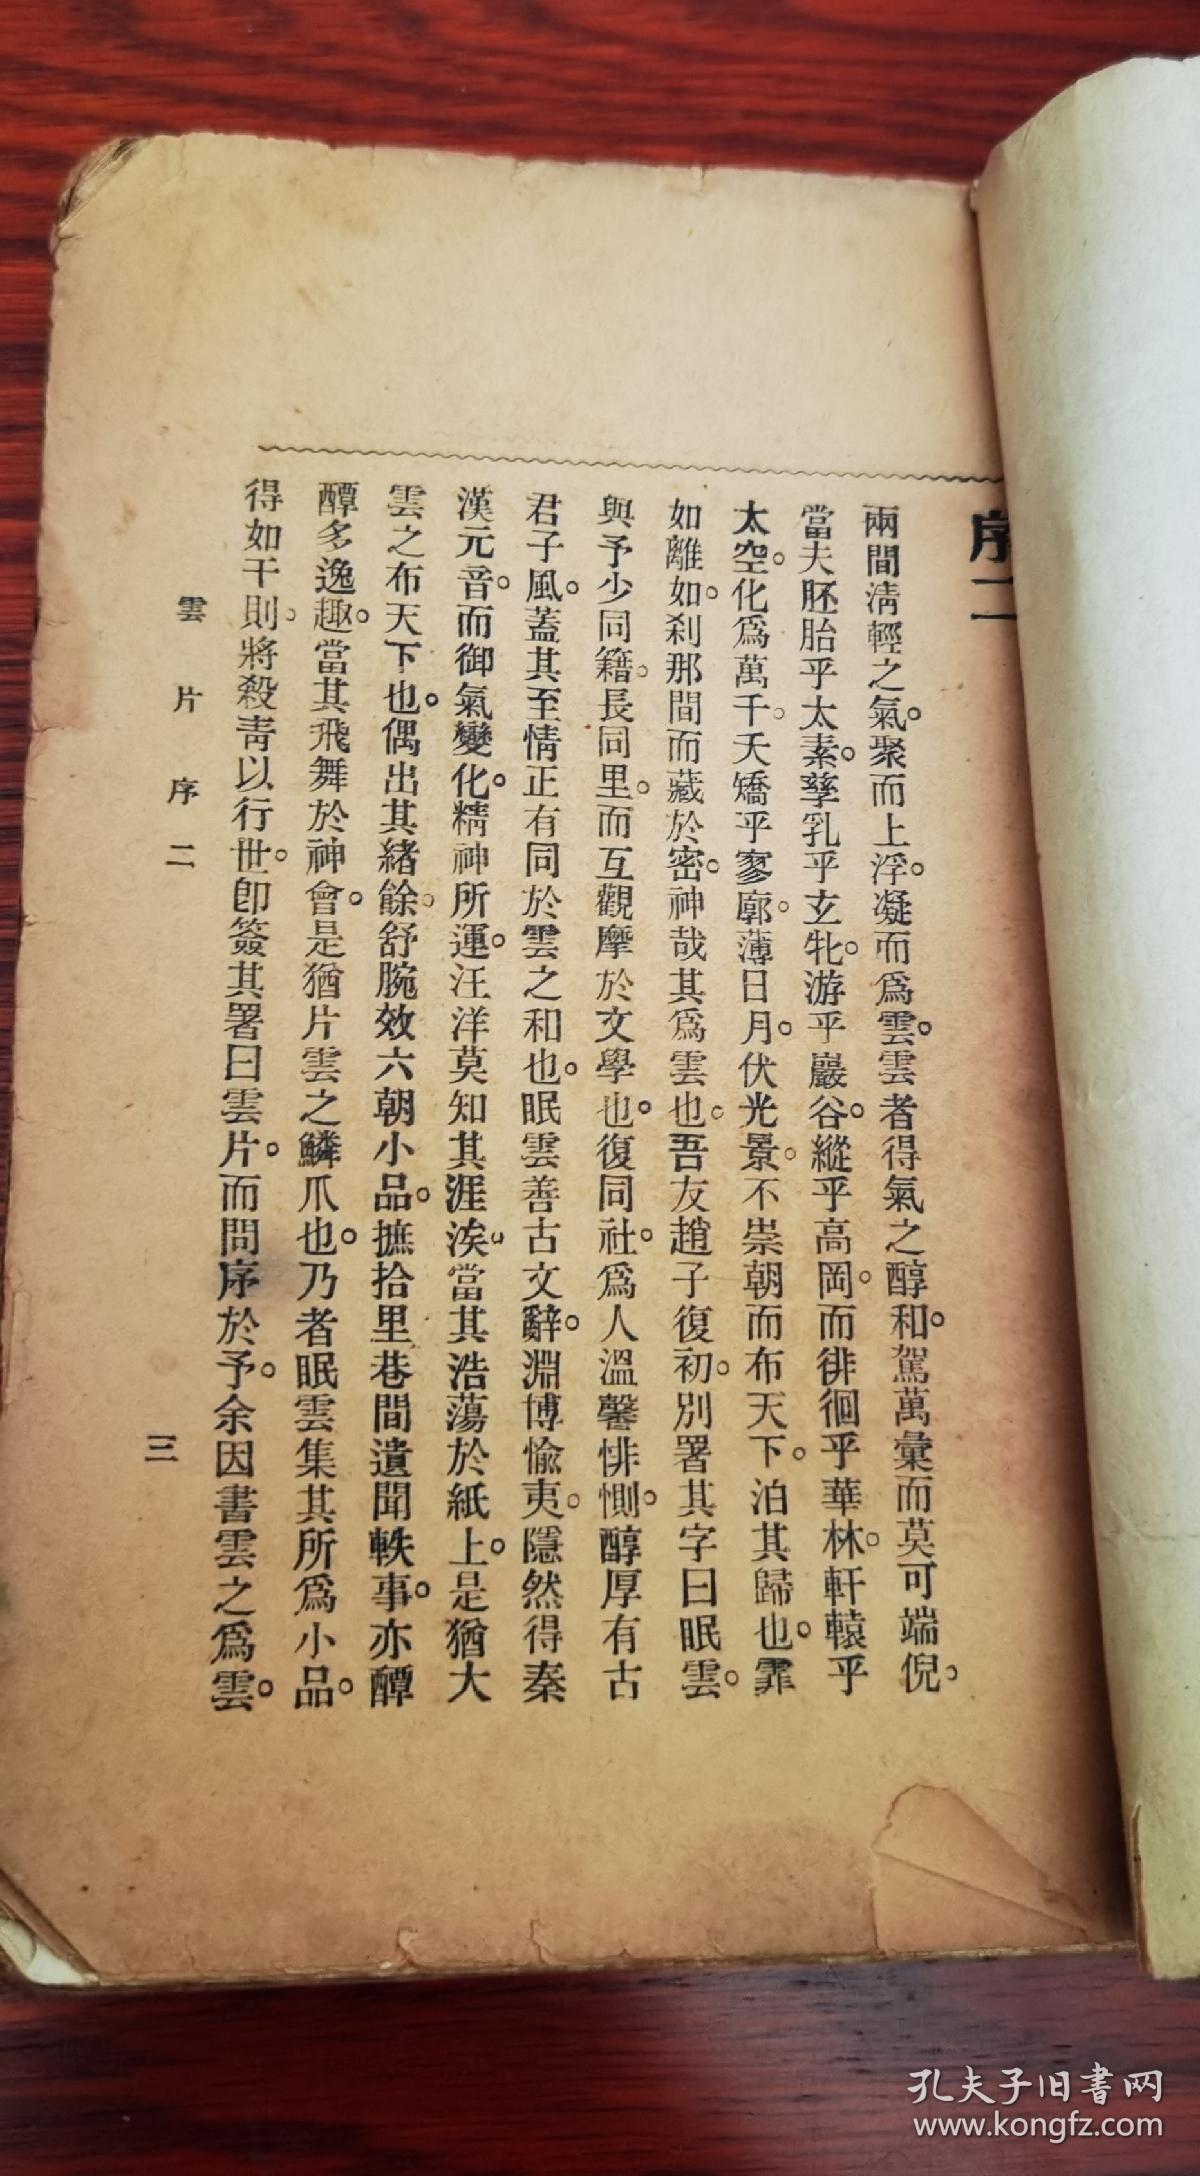 序二
兩間清輕之氣。聚而上浮。凝而爲雲。雲者得氣之醇和。駕萬彙而莫可端倪。
當夫胚胎乎太素。孳乳乎玄牝。游乎巖谷。縱乎高岡。而徘徊乎華林。軒轅乎
太空。化爲萬千。夭矯乎寥廓。薄日月。伏光景。不崇朝而布天下。泊其歸也。霏
如離如。刹那間而藏於密。神哉其爲雲也。吾友趙子復初。別署其字曰眠雲。
與予少同籍。長同里。而互觀摩於文學也。復同社。爲人溫馨悱惻。醇厚有古
君子風。蓋其至情正有同於雲之和也。眠雲善古文辭。淵博愉夷。隱然得秦
漢元音。而御氣變化。精神所運。汪洋莫知其涯涘。當其浩蕩於紙上。是猶大
雲之布天下也。偶出其緒餘。舒腕效六朝小品。摭拾里巷間遺聞軼事。亦醰
醰多逸趣。當其飛舞於神會。是猶片雲之鱗爪也。乃者眠雲集其所爲小品。
得如干則。將殺靑以行世。卽簽其署曰雲片。而問序於予。余因書雲之爲雲。
雲片序二
三
孔夫子旧书网
www.kongfz.com